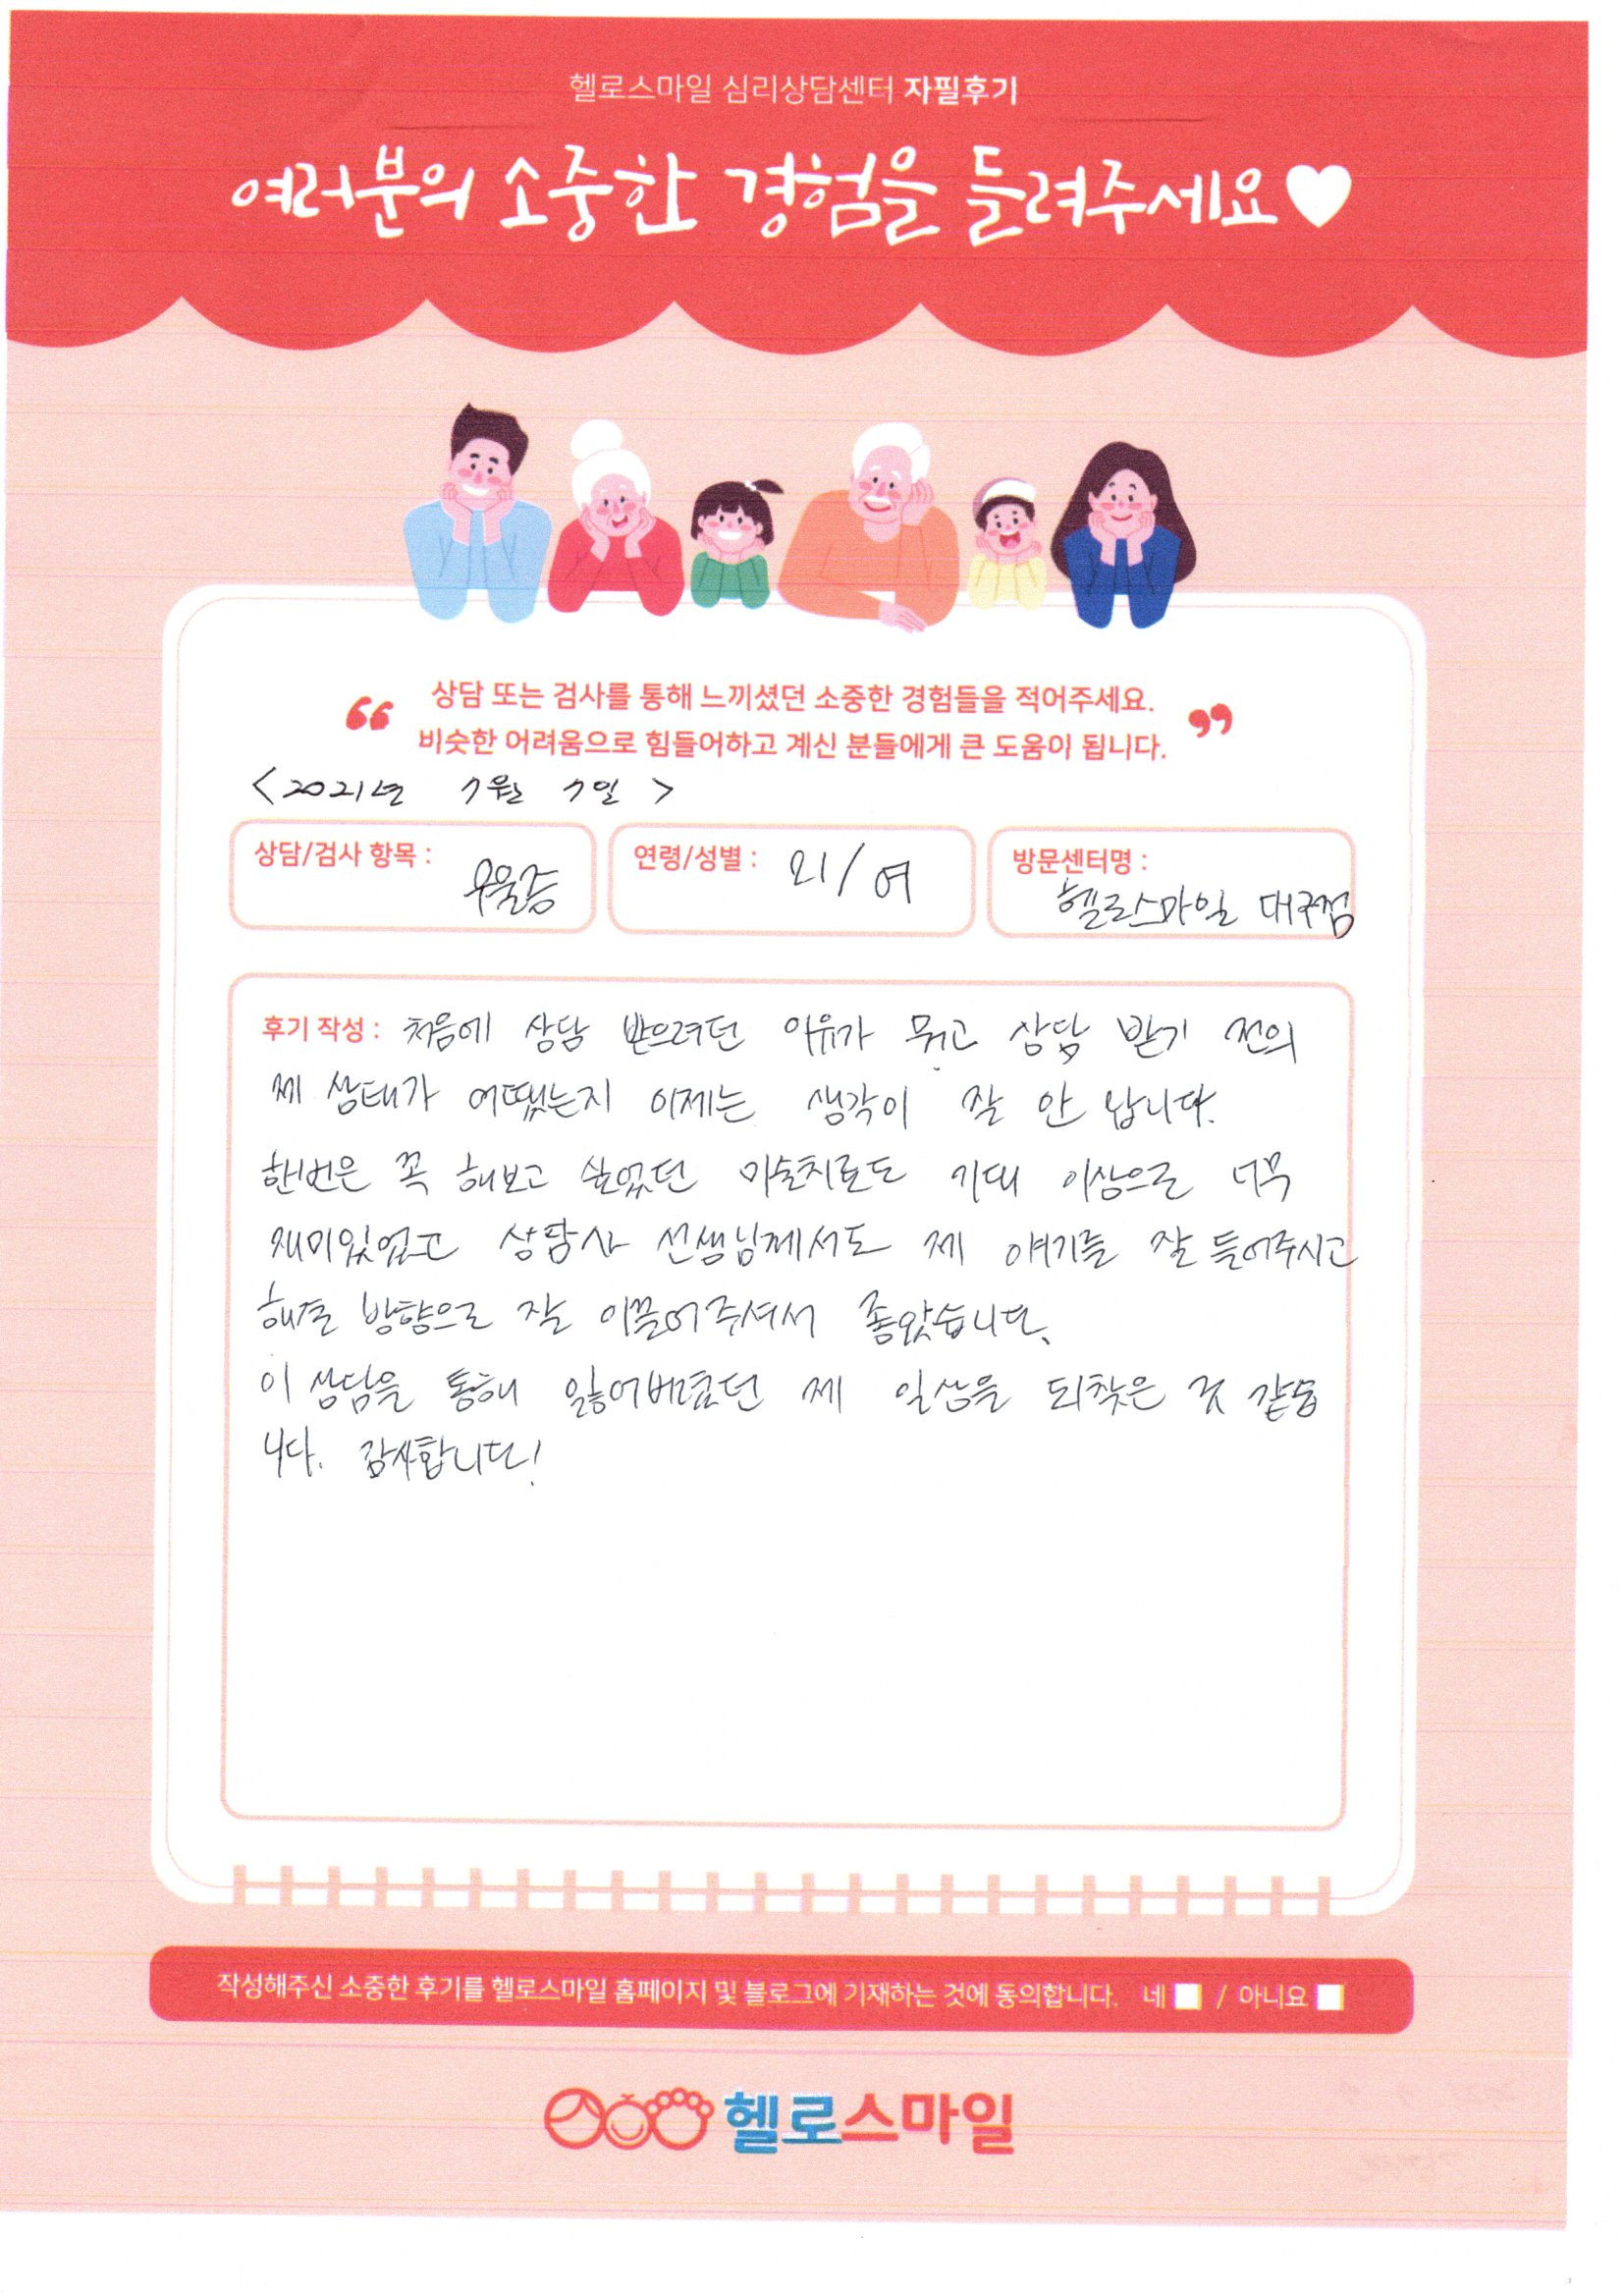 헬로스마일 심리상담센터 자필후기
여러분의 소중한 경험을 들려주세요♥
“ 상담 또는 검사를 통해 느끼셨던 소중한 경험들을 적어주세요.
비슷한 어려움으로 힘들어하고 계신 분들에게 큰 도움이 됩니다. ”
<2021년 7월 7일>
상담/검사 항목 : 우울증
연령/성별 : 21/여
방문센터명 : 헬로스마일 대구점
후기 작성 : 처음에 상담 받으려던 이유가 뭐고 상담 받기 전의
제 상태가 어땠는지 이제는 생각이 잘 안 납니다.
한번은 꼭 해보고 싶었던 미술치료도 기대 이상으로 너무
재미있었고 상담사 선생님께서도 제 얘기를 잘 들어주시고
해결 방향으로 잘 이끌어주셔서 좋았습니다.
이 상담을 통해 잃어버렸던 제 일상을 되찾은 것 같습
니다. 감사합니다!
작성해주신 소중한 후기를 헬로스마일 홈페이지 및 블로그에 기재하는 것에 동의합니다. 네 / 아니요
헬로스마일